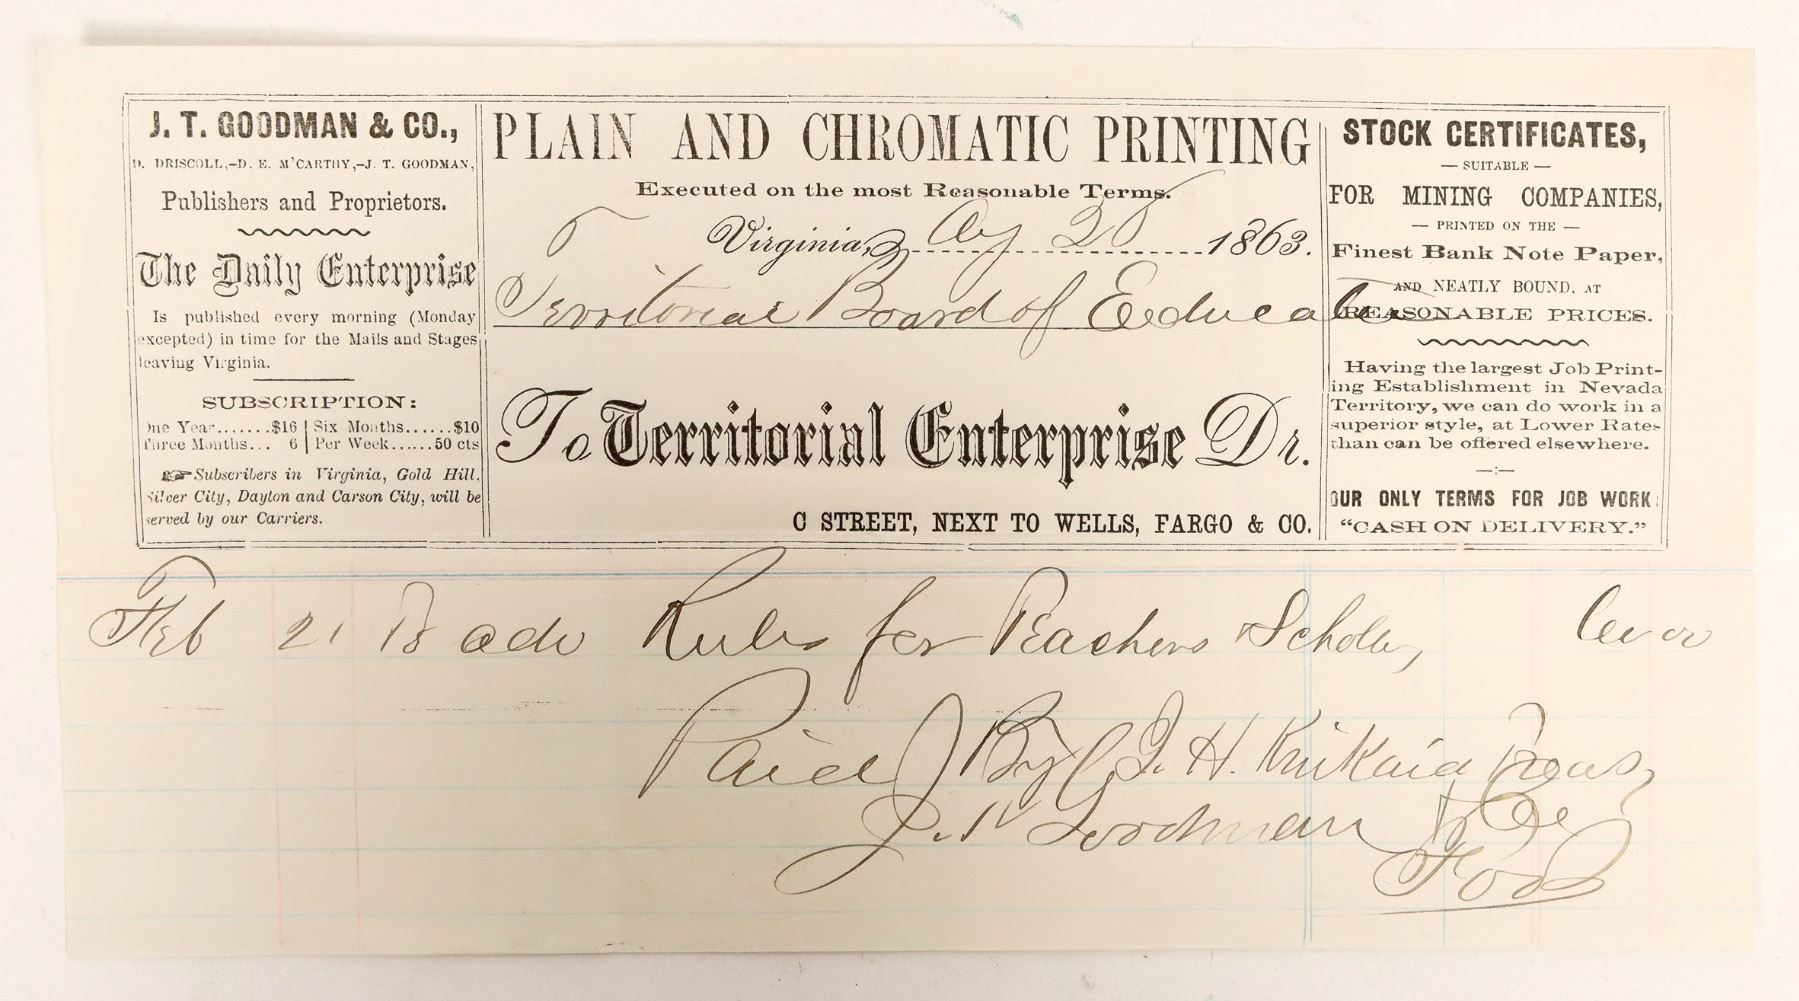 J. T. GOODMAN & CO.,
D. DRISCOLL,-D. E. M'CARTHY,-J. T. GOODMAN,
Publishers and Proprietors.
The Daily Enterprise
Is published every morning (Monday
excepted) in time for the Mails and Stages
leaving Virginia.
SUBSCRIPTION:
One Year.......$16 | Six Months......$10
Three Months... 6 | Per Week......50 cts
☞Subscribers in Virginia, Gold Hill,
Silver City, Dayton and Carson City, will be
served by our Carriers.
PLAIN AND CHROMATIC PRINTING
Executed on the most Reasonable Terms.
Virginia, 28 1863.
Territorial Board of
To Territorial Enterprise Dr.
C STREET, NEXT TO WELLS, FARGO & CO.
STOCK CERTIFICATES,
— SUITABLE —
FOR MINING COMPANIES,
— PRINTED ON THE —
Finest Bank Note Paper,
AND NEATLY BOUND, AT
REASONABLE PRICES.
Having the largest Job Print-
ing Establishment in Nevada
Territory, we can do work in a
superior style, at Lower Rates
than can be offered elsewhere.
OUR ONLY TERMS FOR JOB WORK:
"CASH ON DELIVERY."
Feb 21 Rules for Teachers
Paid By J. H. Treas,
J. T. Goodman & Co